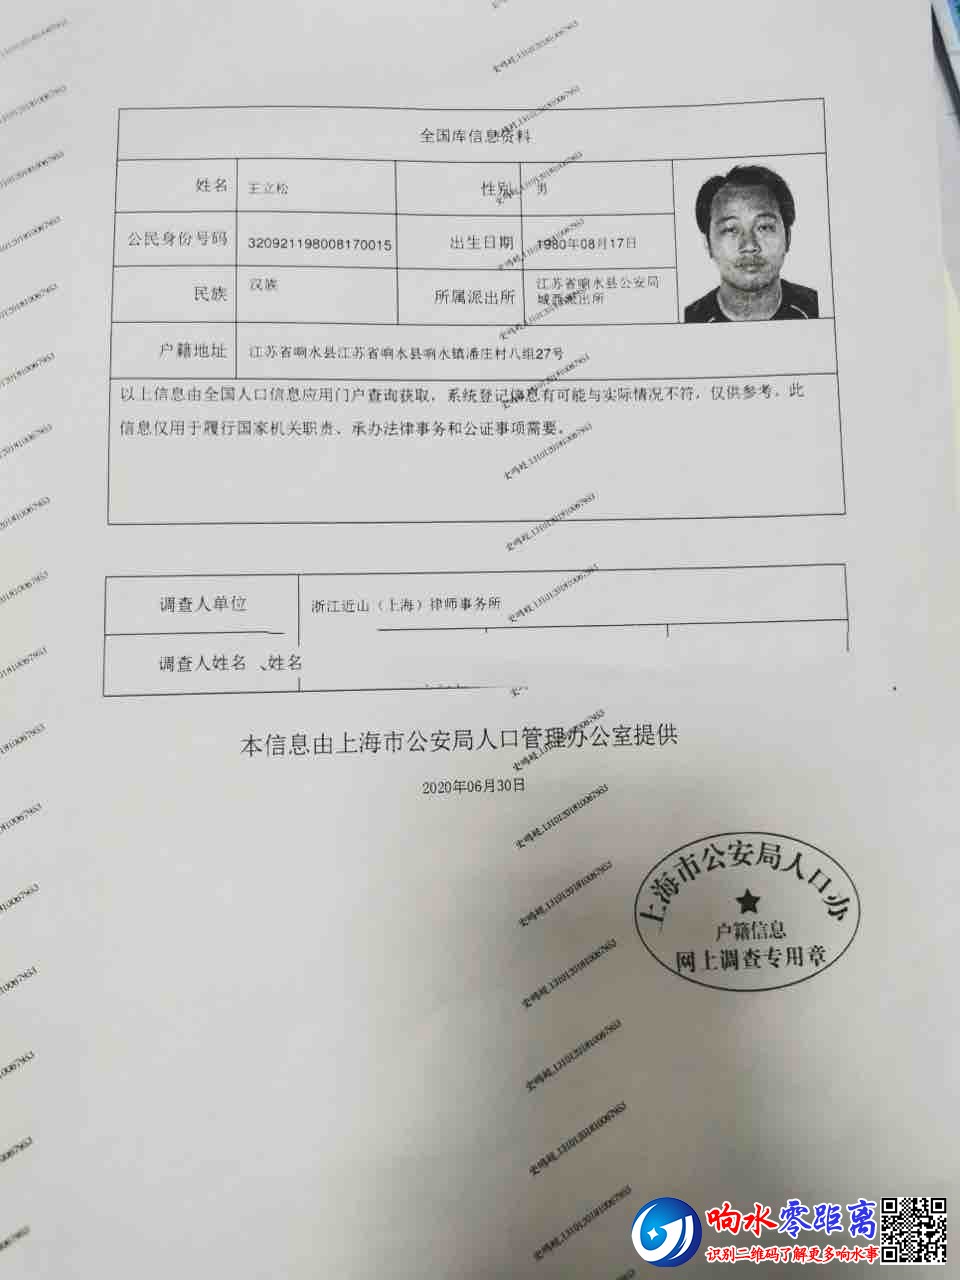 全国库信息资料
姓名 王立松 性别 男
公民身份号码 320921198008170015 出生日期 1980年08月17日
民族 汉族 所属派出所 江苏省响水县公安局
城西派出所
户籍地址 江苏省响水县江苏省响水县响水镇潘庄村八组27号
以上信息由全国人口信息应用门户查询获取，系统登记信息有可能与实际情况不符，仅供参考，此
信息仅用于履行国家机关职责、承办法律事务和公证事项需要。
调查人单位 浙江近山（上海）律师事务所
调查人姓名 、姓名
本信息由上海市公安局人口管理办公室提供
2020年06月30日
上海市公安局人口办
户籍信息
网上调查专用章
响水零距离
识别二维码了解更多响水事